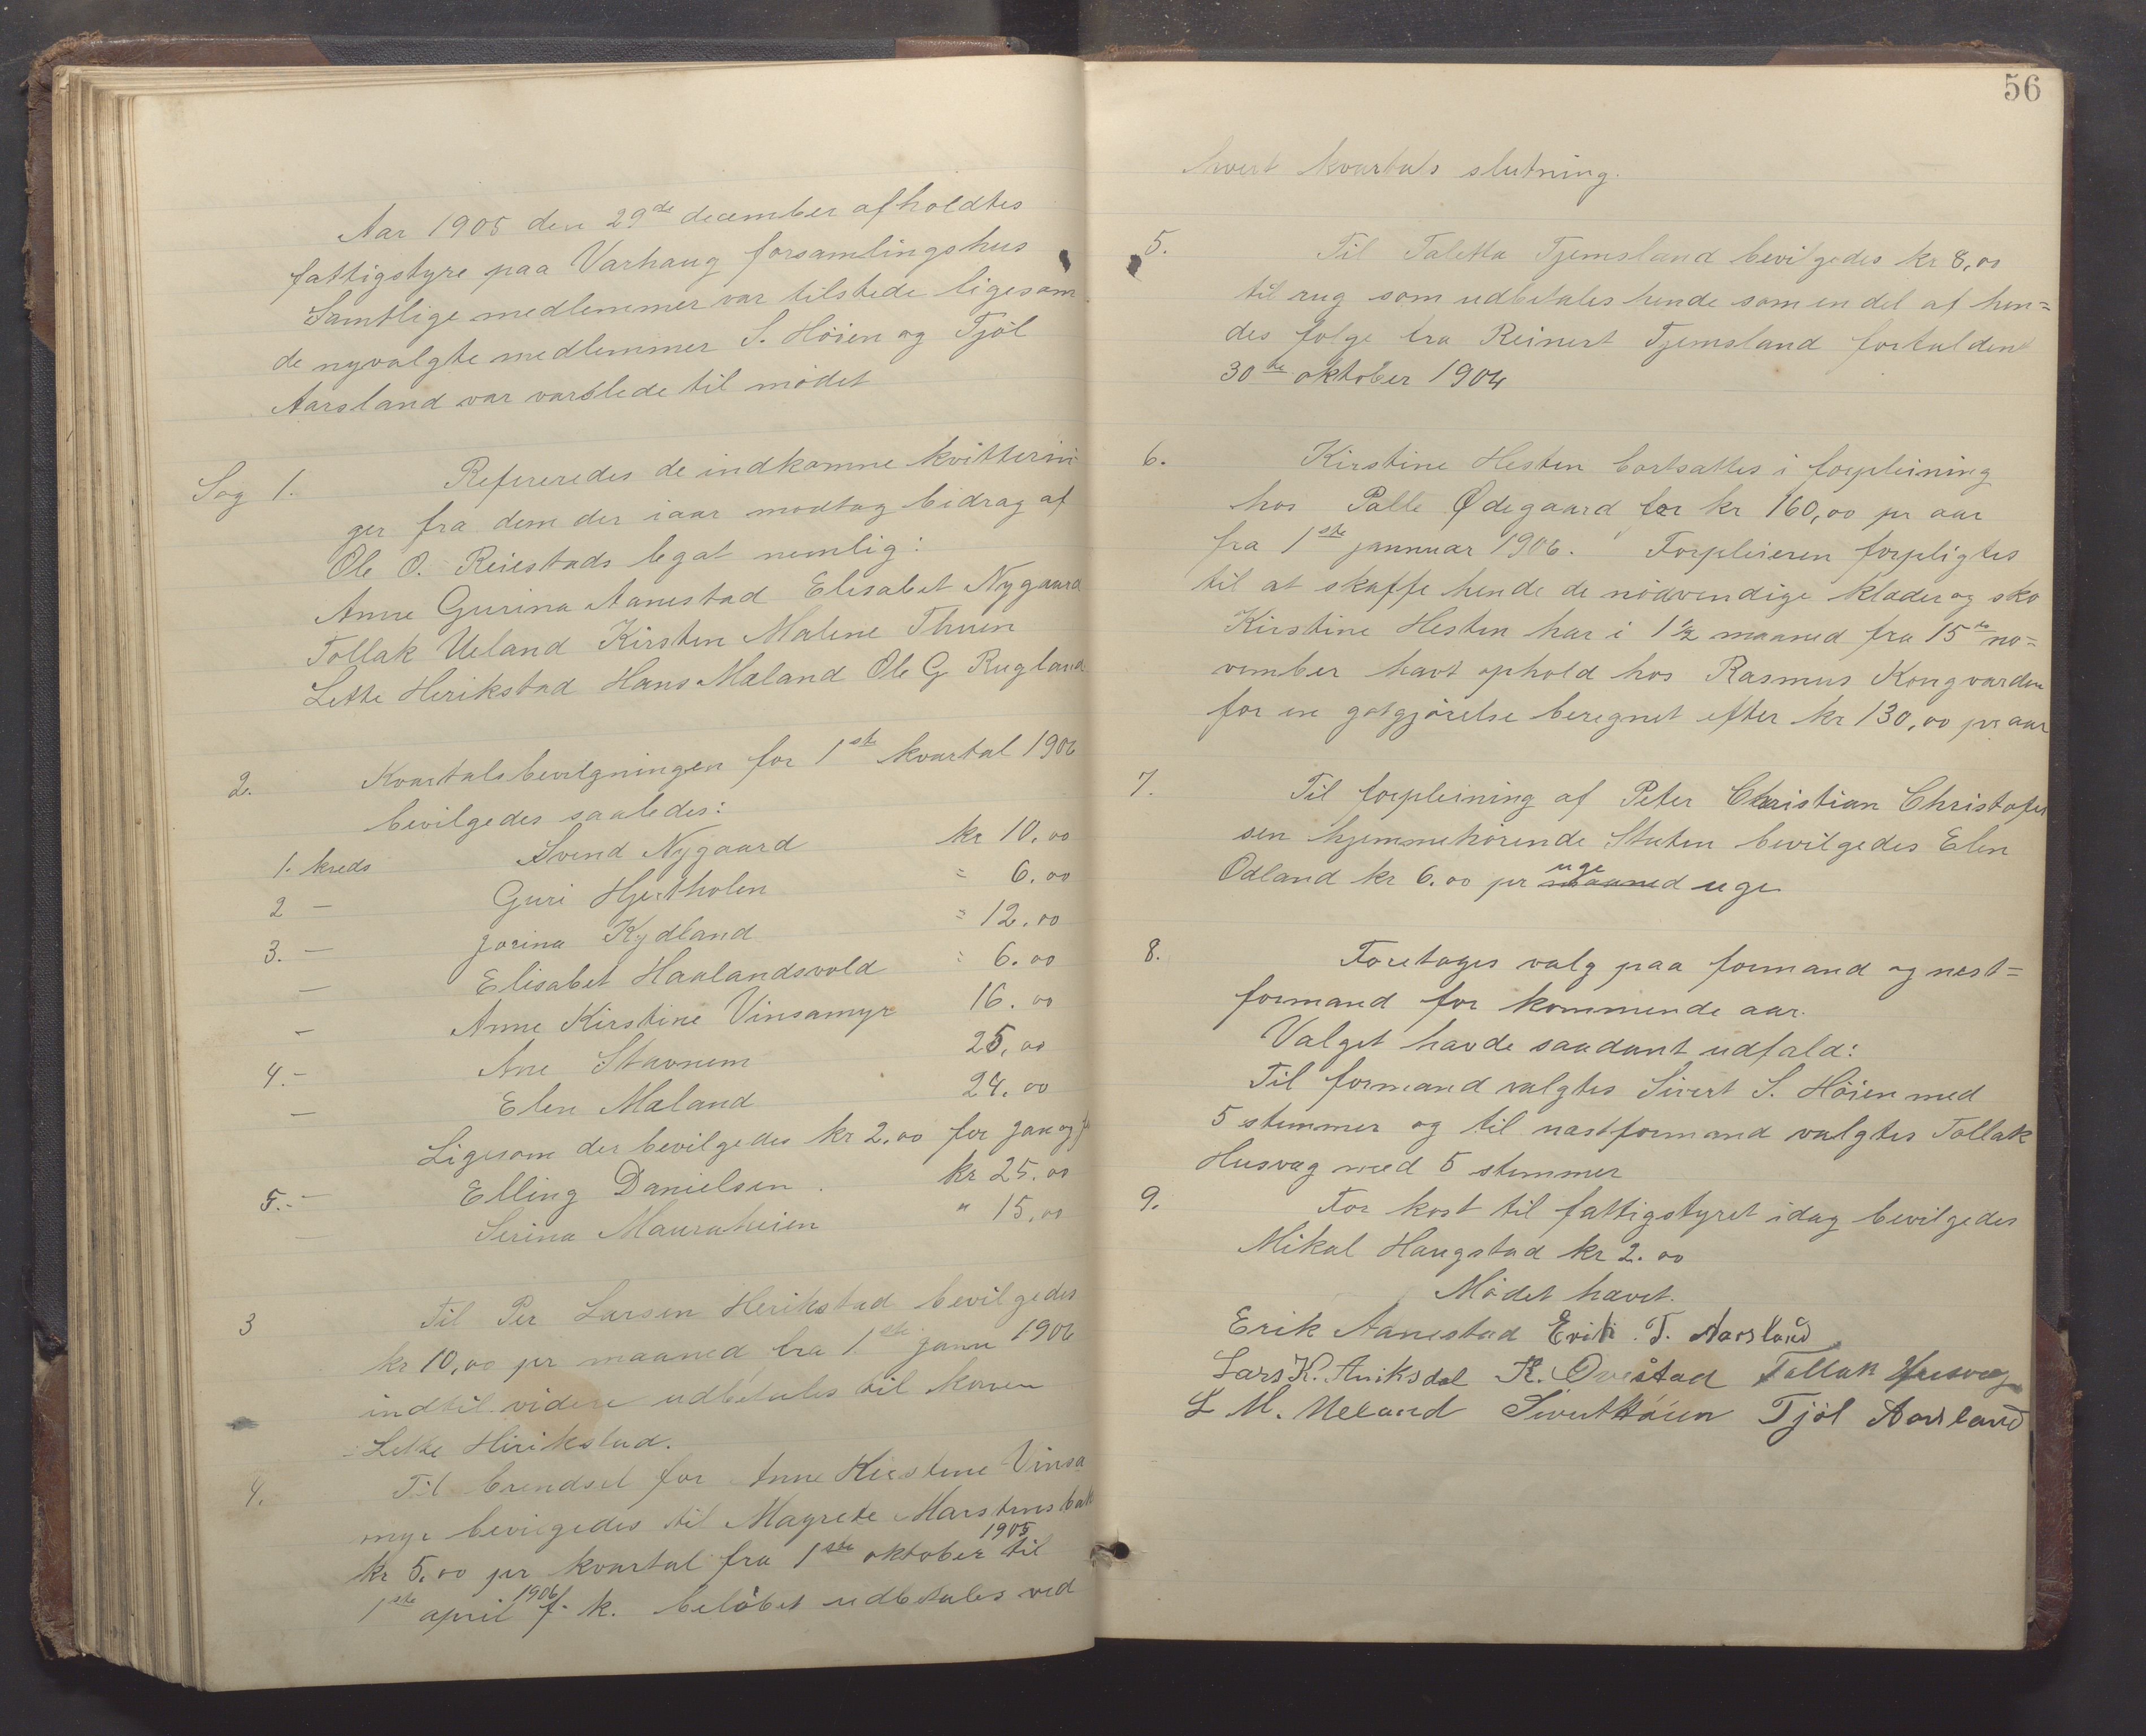 Aar 1905 den 29de december afholdtes
fattigstyre paa Varhaug forsamlingshus
Samtlige medlemmer var tilstede ligesom
de nyvalgte medlemmer S. Höien og Tjöl
Aarsland var varslede til mödet
Sag 1. Refereredes de indkomne kvitterin
ger fra dem der iaar modtog bidrag af
Ole O. Reiestads legat nemlig:
Anne Gurina Aanestad Elisabet Nygaard
Tollak Ueland Kirsten Malene Thuen
Lette Herikstad Hans Mæland Ole G. Rugland
2. Kvartalsbevilgningen for 1ste kvartal 1906
bevilgedes saaledes:
1. kreds Svend Nygaard kr 10,00
2 — Guri Hjertholen = 6.00
3. — Jorina Kydland = 12.00
— Elisabet Haalandsvold = 6.00
— Anne Kirstine Vinsamyr 16.00
4. — Ane Stavnem 25,00
— Elen Mæland 24.00
Ligesom der bevilgedes kr 2,00 for jan og
5. — Elling Danielsen. kr 25.00
— Serina Mauraheien " 15,00
3 Til Per Larsen Herikstad bevilgedes
kr 10,00 pr maaned fra 1ste janu 1906
indtil videre udbetales til konen
Lette Herikstad.
4. Til brendsel for Anne Kirstine Vinsa
myr bevilgedes til Magrete Marstensbak
kr 5,00 pr kvartal fra 1ste oktober 1905 til
1ste april 1906 f. k. belöbet udbetales ved
56
hvert kvartals slutning.
5. Til Taletta Tjemsland bevilgedes kr 8,00
til rug som udbetales hende som en del af hen=
des folge fra Reinert Tjemsland forfalden
30te oktober 1904
6. Kirstine Hesten bortsattes i forpleining
hos Palle Ødegaard for kr 160,00 pr aar
fra 1ste jannuar 1906. Forpleieren forpligtes
til at skaffe hende de nödvendige klæder og sko
Kirstine Hesten har i 1 1/2 maaned fra 15de no=
vember havt ophold hos Rasmus Kongvarden
for en godgjörelse beregnet efter kr 130,00 pr aar
7. Til forpleining af Peter Christian Christofer
sen hjemmehörende Stuten bevilgedes Elen
Odland kr 6.00 pr maaned uge uge
8. Foretoges valg paa formand og nest=
formand for kommende aar.
Valget havde saadant udfald:
Til formand valgtes Sivert S. Höien med
5 stemmer og til næstformand valgtes Tollak
Husvæg med 5 stemmer
9. For kost til fattigstyret idag bevilgedes
Mikal Haugstad kr 2.00
Mödet hævet.
Erik Aanestad Erik T. Aarsland
Lars K. Aniksdal K. Ovestad Tollak Husvæg
L M. Ueland Sivert Höien Tjöl Aarsland